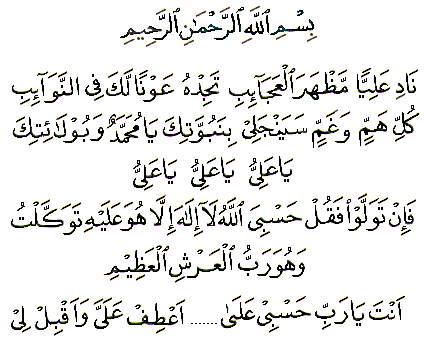 بِسْمِ ٱللَّهِ ٱلرَّحْمَٰنِ ٱلرَّحِيمِ
نَادِ عَلِيًّا مَّظْهَرَ ٱلْعَجَآئِبِ تَجِدْهُ عَوْنًا لَّكَ فِى النَّوَآئِبِ
كُلِّ هَمٍّ وَغَمٍّ سَيَنْجَلِىْ بِنَبُوَّتِكَ يَا مُحَمَّدُ وَبُوِلَائِتِكَ
يَاعَلِىُّ يَاعَلِىُّ يَاعَلِىُّ
فَإِنْ تَوَلَّوْا فَقُلْ حَسْبِىَ ٱللَّهُ لَآ إِلَٰهَ إِلَّا هُوَ عَلَيْهِ تَوَكَّلْتُ
وَهُوَ رَبُّ ٱلْعَرْشِ ٱلْعَظِيْمِ
اَنْتَ يَا رَبِّ حَسْبِىْ عَلَىٰ ...... اَعْطِفْ عَلَىَّ وَاَقْبِلْ لِىْ